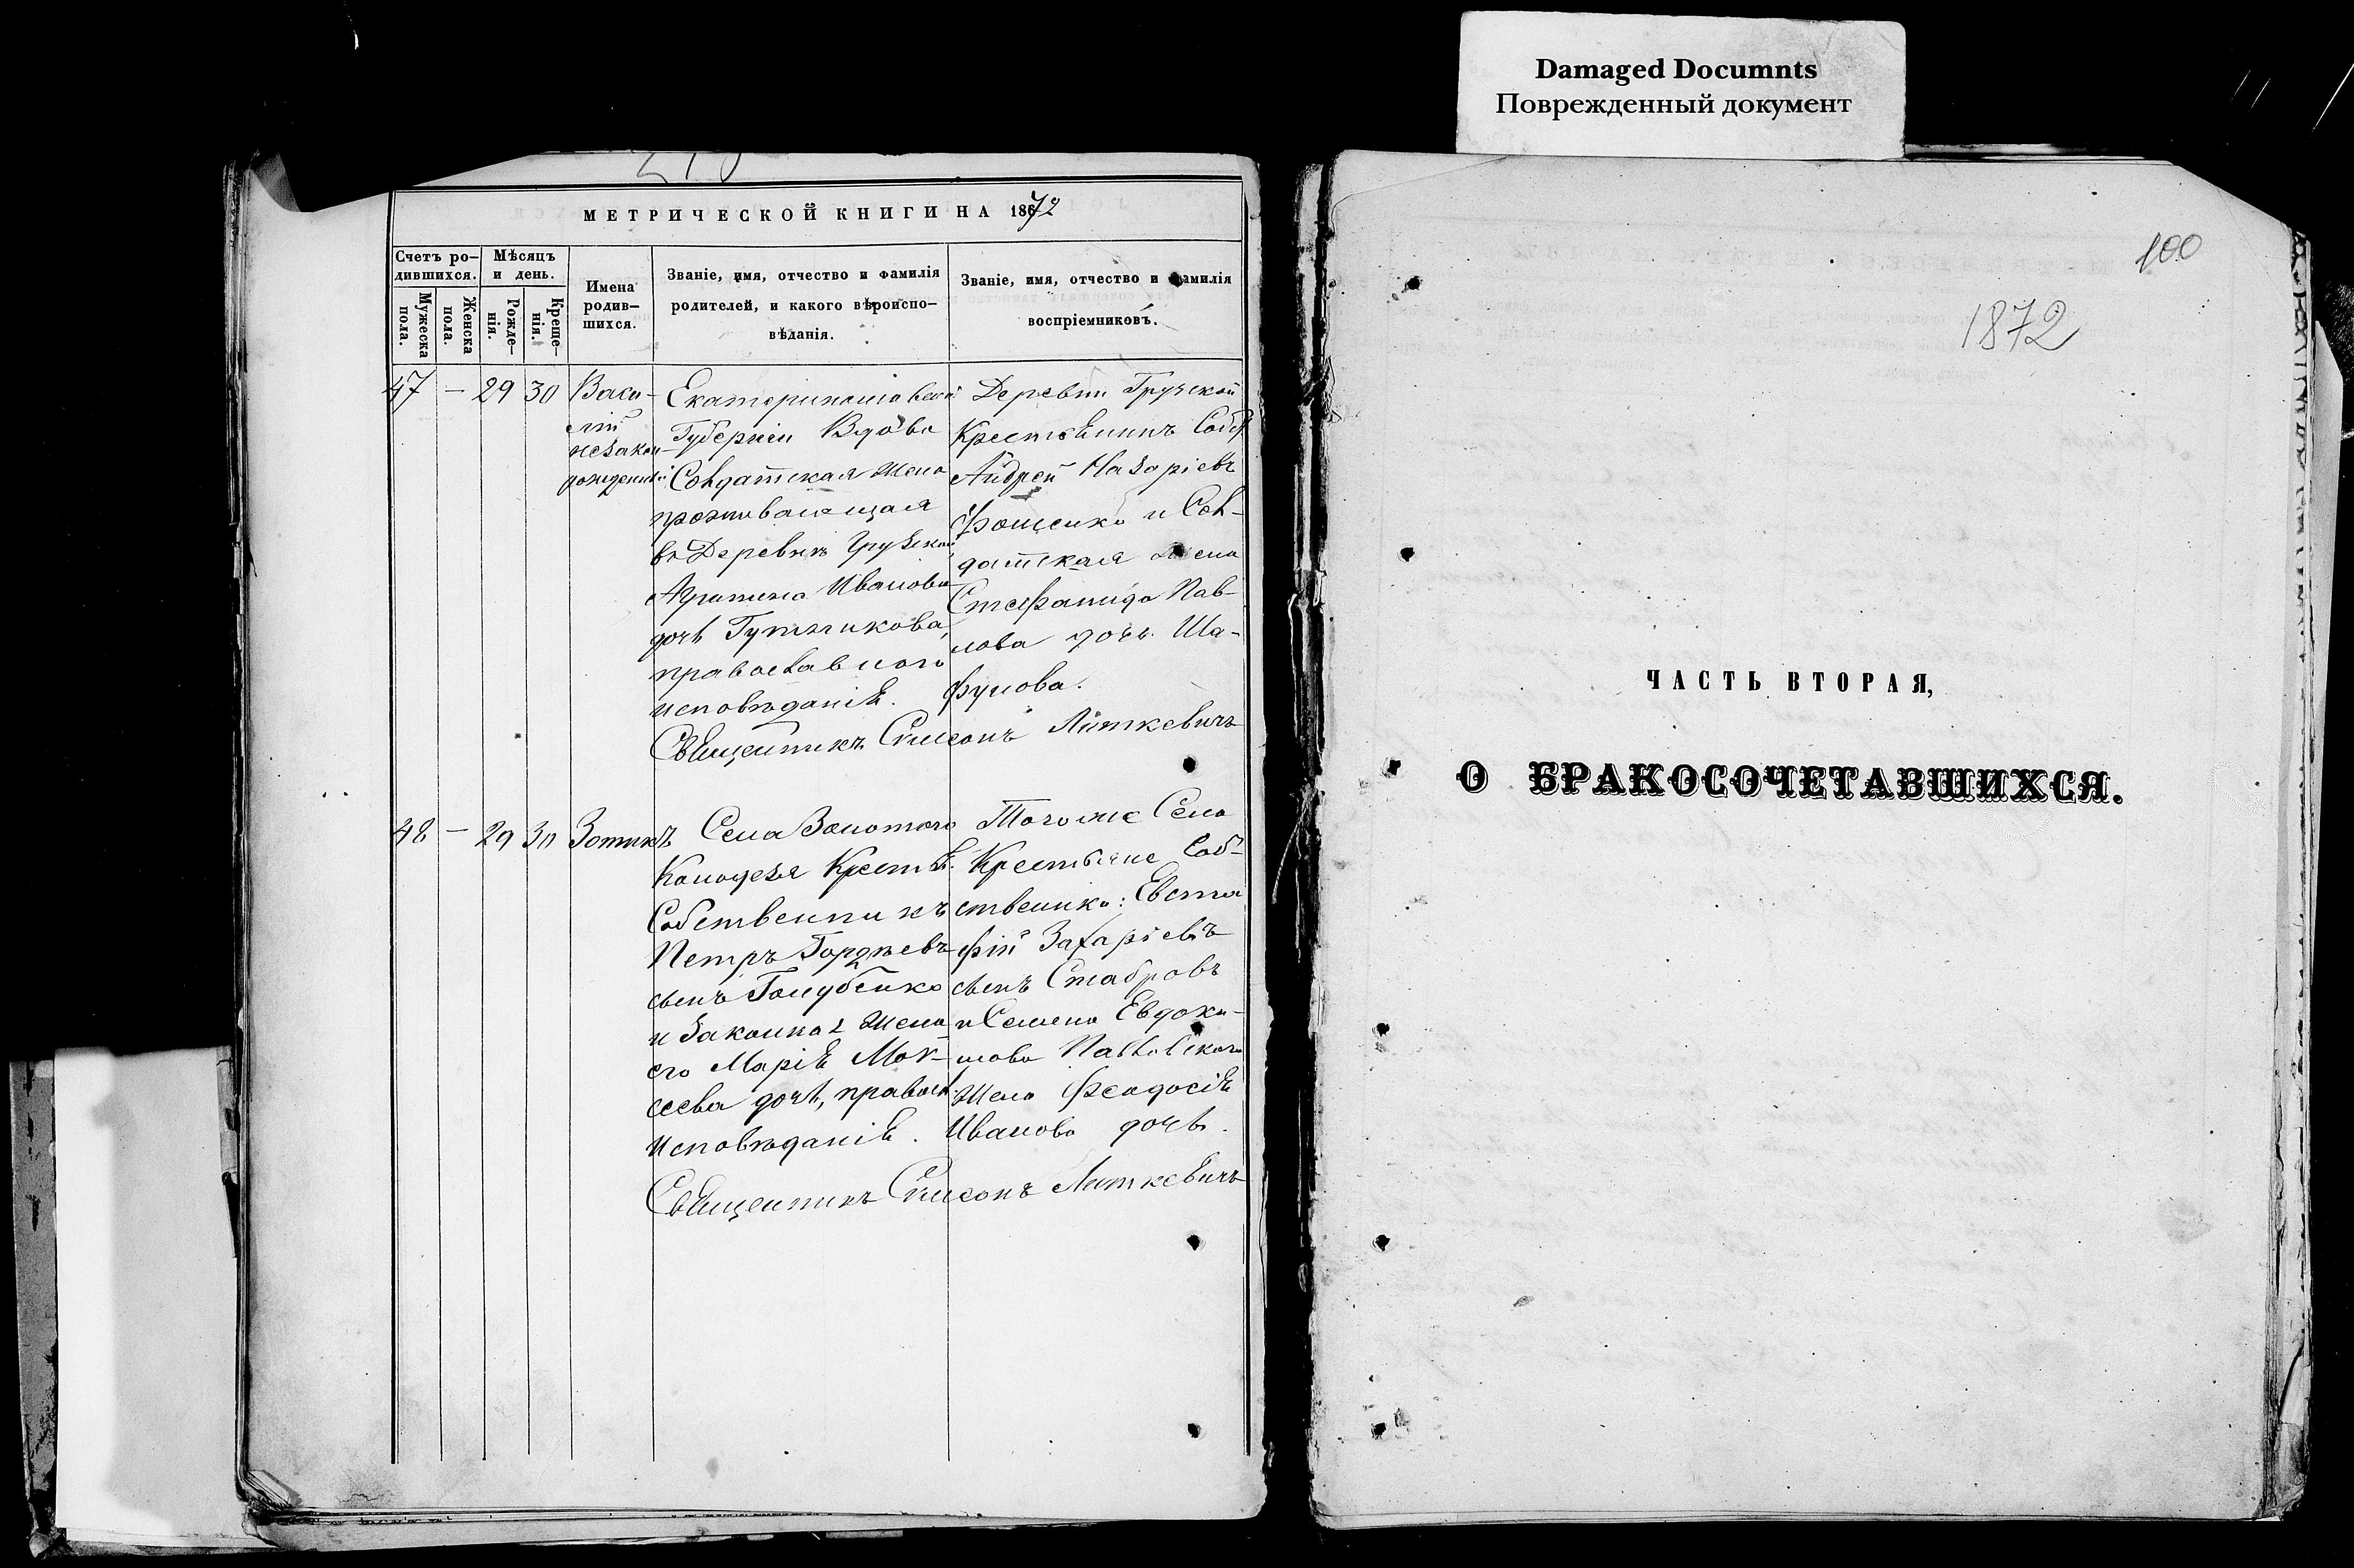 Damaged Documnts
Поврежденный документ
МЕТРИЧЕСКОЙ КНИГИ НА 1872
Счетъ ро-
дившихся.
Мужеска
пола.
Женска
пола.
Мѣсяцъ
и день.
Рожде-
нія.
Креще-
нія.
Имена
родив-
шихся.
Званіе, имя, отчество и фамилія
родителей, и какого вѣроиспо-
вѣданія.
Званіе, имя, отчество и фамилія
воспріемниковъ.
47 — 29 30
Васи-
лій
незакон-
рожденный
Екатеринославской
Губерніи Вдова
Солдатская жена
проживающая
въ Деревнѣ Грузской
Агрипина Иванова
дочь
православного
исповѣданія.
Деревни Грузской
Крестьянинъ Собст
Андрей Назаріевъ
и Сол-
датская жена
Стефанида Пав-
лова дочь Ша-
фунова.
Священникъ Симеонъ Литкевичъ
48 — 29 30
Зотикъ
Села Золотого
Колодезя Крестья.
Собственникъ
Петръ Гордѣевъ
сынъ Голубенко
и законная жена
его Марія Мои-
сеева дочь, правосл.
Исповѣданія.
Того же Села
Крестьяне Соб-
ственико: Евста
фій Захаріевъ
сынъ Стабровъ
и Семена Евдоки-
мова Павловского
жена Феодосія
Иванова дочь.
Священникъ Симеонъ Литкевичъ
100
1872
ЧАСТЬ ВТОРАЯ,
О БРАКОСОЧЕТАВШИХСЯ.